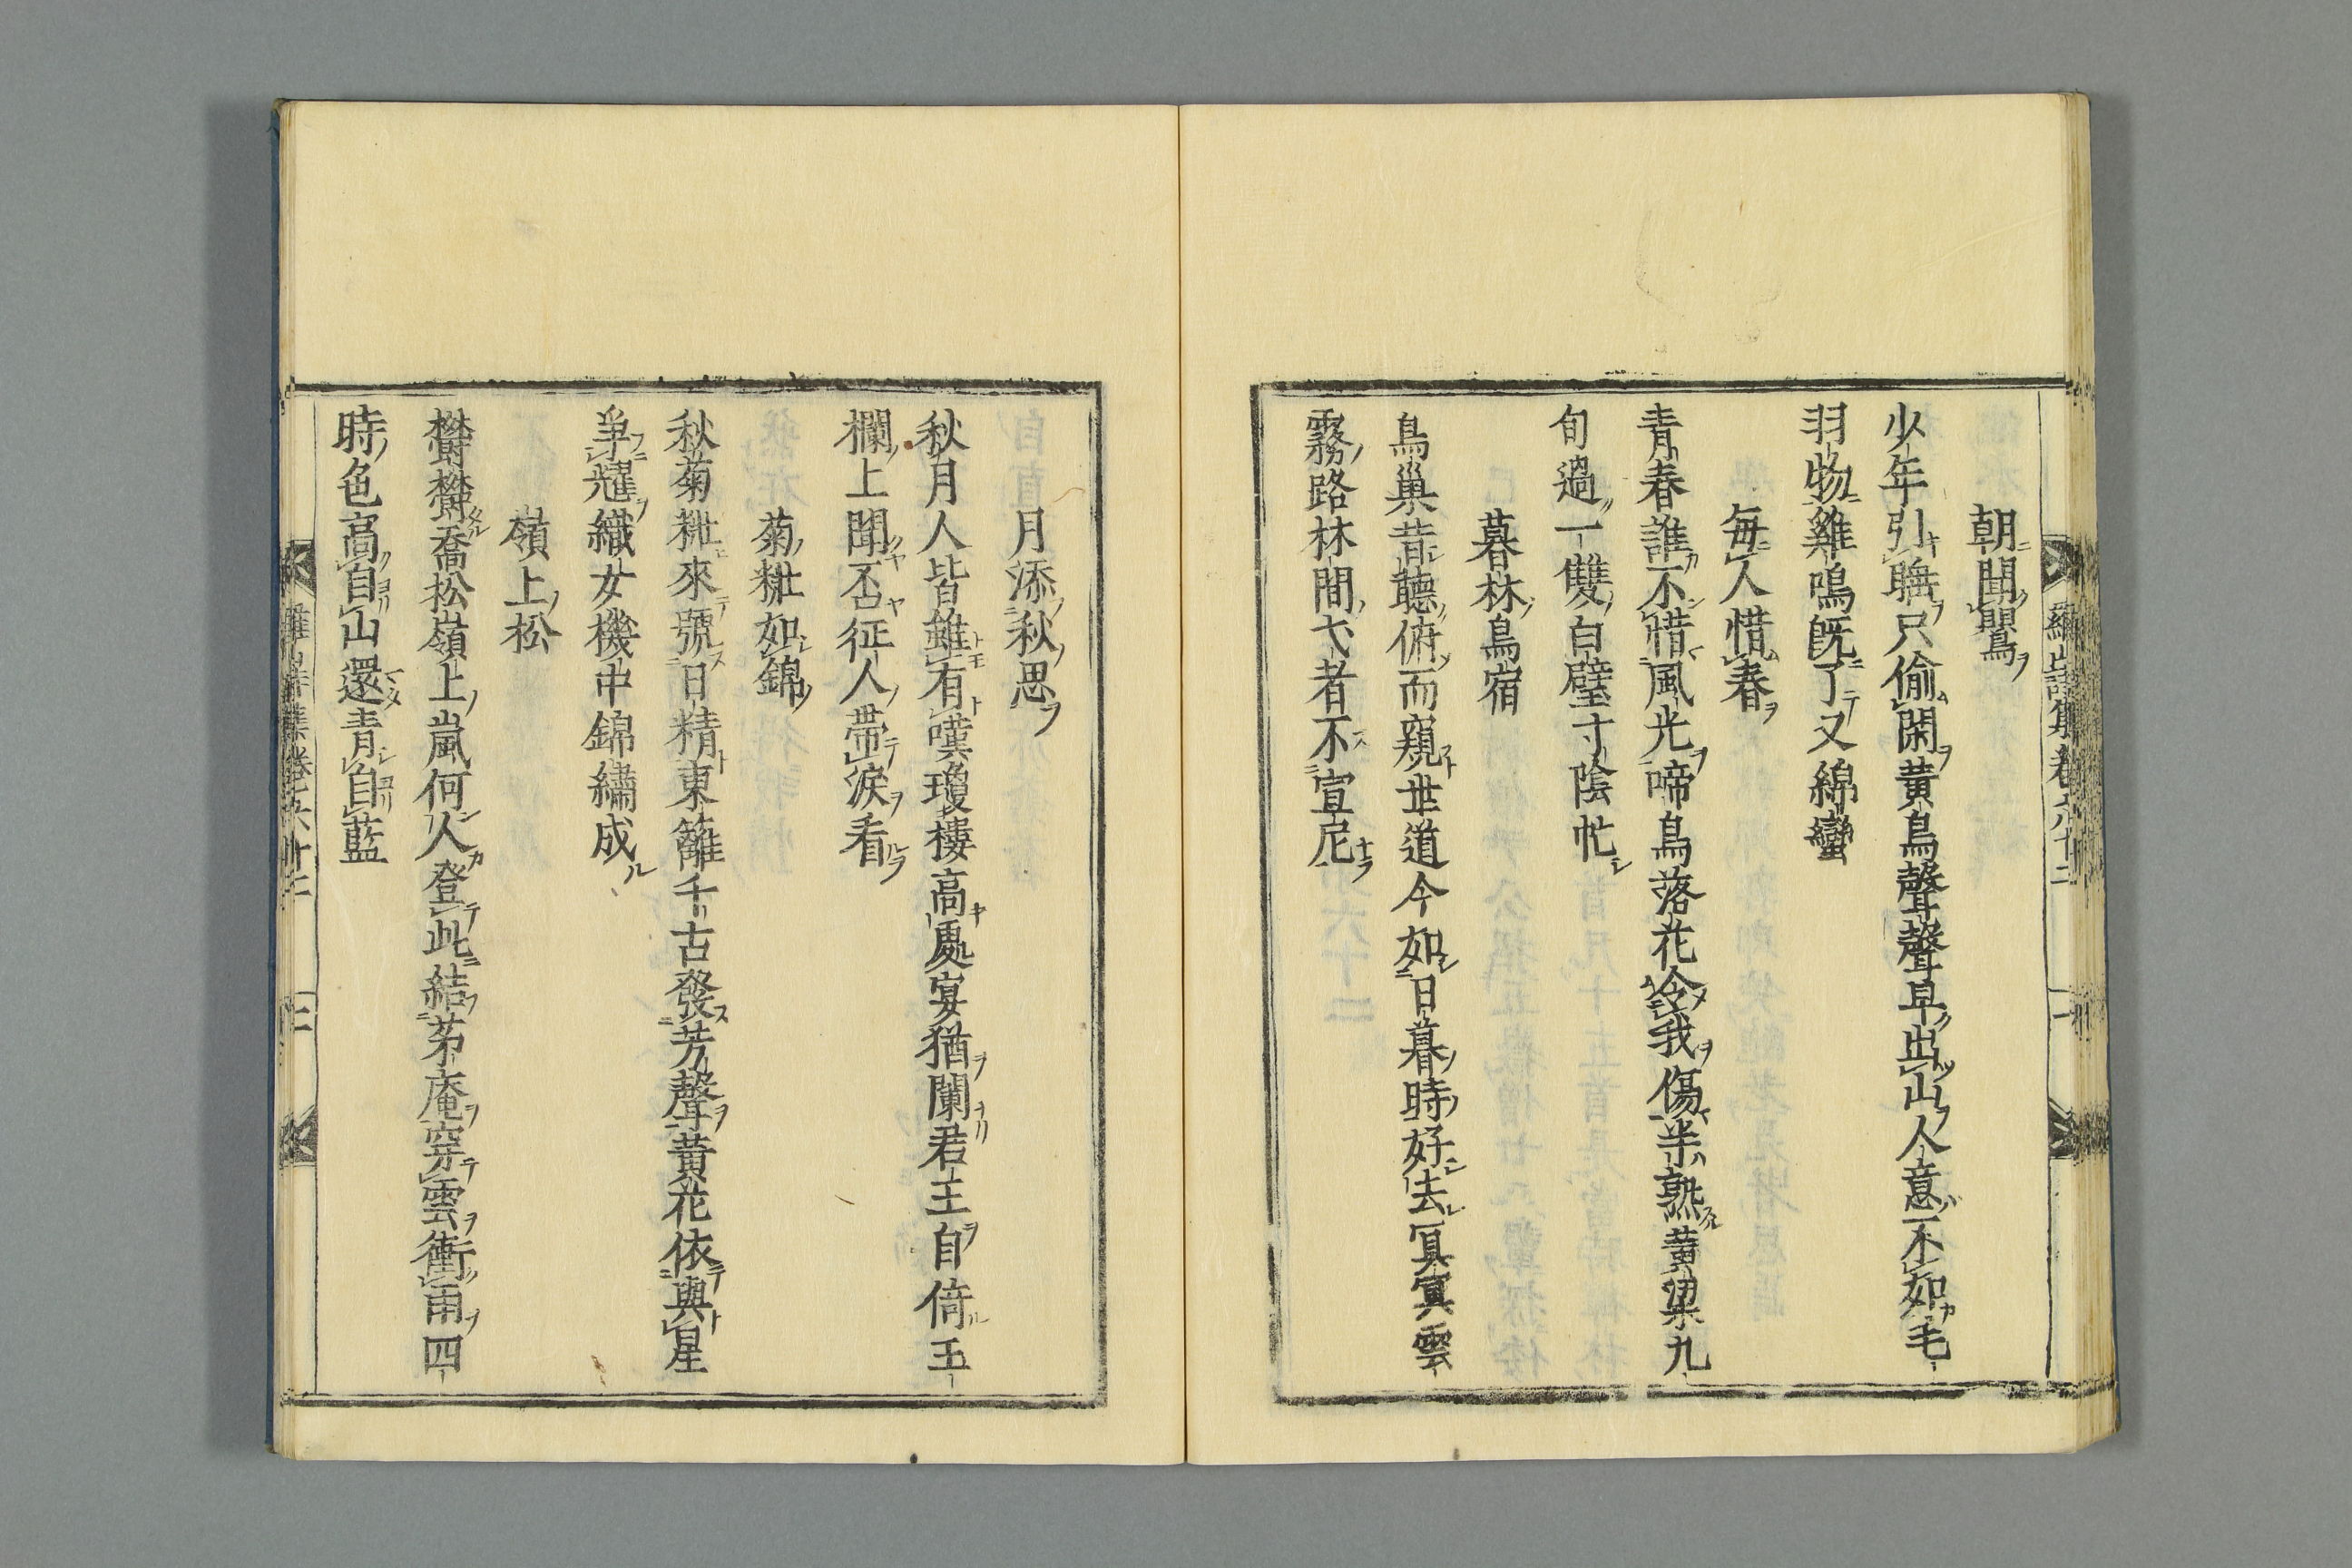 朝聞鸎
少年引睡只偷閑黄鳥聲聲早出山人意不如毛
羽物雞鳴既了又綿蠻
毎人惜春
青春誰不惜風光啼鳥落花令我傷半熟黄梁九
旬過一雙白璧寸陰忙
暮林鳥宿
鳥巢昔聽俯而窺世道今如日暮時好去冥冥雲
霧路林間弋者不宣尼
月添秋思
秋月人皆雖有嘆瓊樓高處宴猶闌君王自倚玉
欄上聞否征人帶淚看
菊粃如錦
秋菊粃來號日精東籬千古發芳聲黄花依與星
爭耀織女機中錦繡成
嶺上松
欎欎喬松嶺上嵐何人登此結茅庵穿雲衝雨四
時色高自山還青自藍